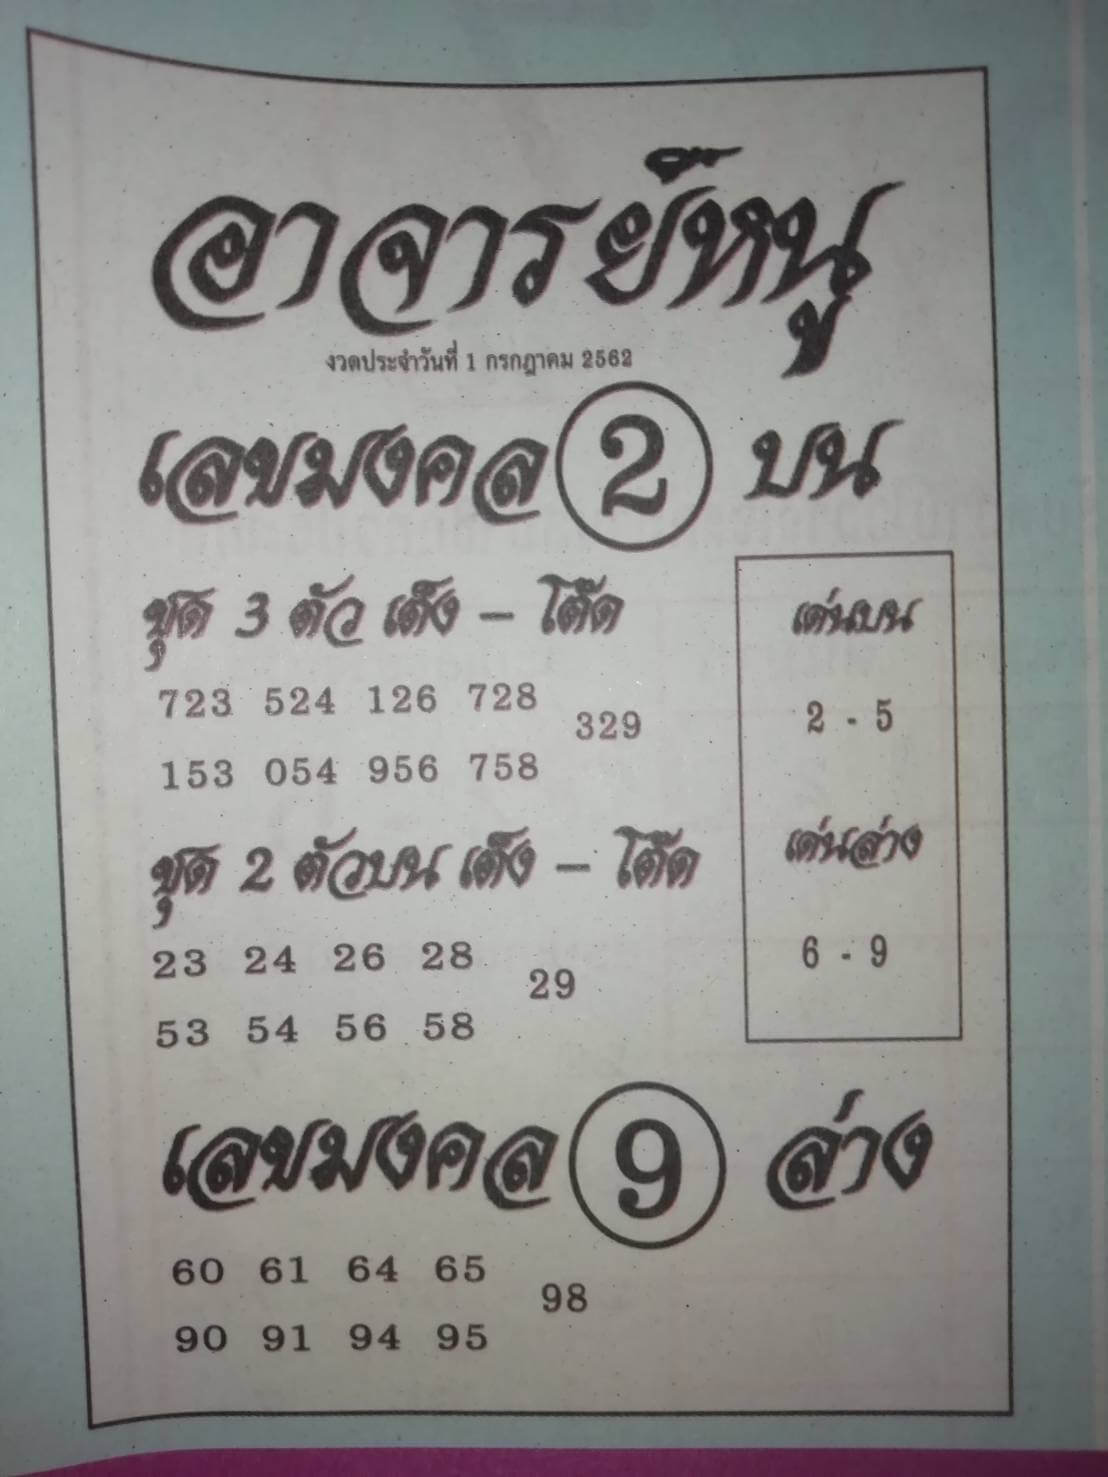 อาจารย์หนู
งวดประจำวันที่ 1 กรกฎาคม 2562
เลขมงคล 2 บน
ชุด 3 ตัว เต็ง - โต๊ด
723 524 126 728
329
153 054 956 758
ชุด 2 ตัวบน เต็ง - โต๊ด
23 24 26 28
29
53 54 56 58
เด่นบน
2 - 5
เด่นล่าง
6 - 9
เลขมงคล 9 ล่าง
60 61 64 65
98
90 91 94 95